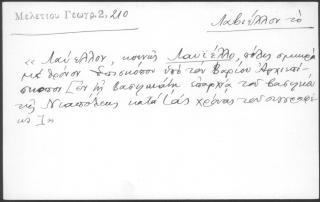 Μελετίου Γεωγρ. 2, 210
Λαβιέλλον τό
« Λαύελλον, κοινῶς Λαυϊέλλο, πόλις σμικρά
μὲ θρόνον Ἐπισκόπου ὑπὸ τὸν Βαρίου Ἀρχιεπί-
σκοπον [ἐν τῇ Βασιλικάτῃ ἐπαρχίᾳ τοῦ Βασιλείου
τῆς Νεαπόλεως κατὰ τοὺς χρόνους τοῦ συγγραφέ-
ως]»